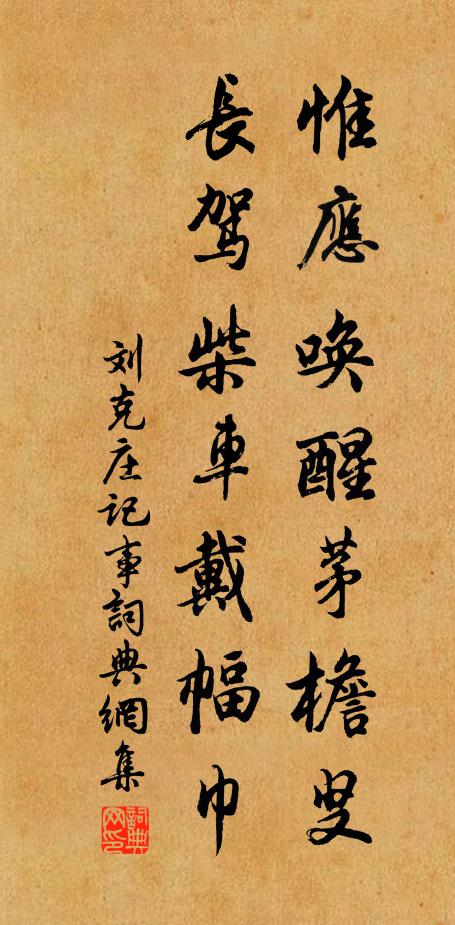 惟應唤醒茅檐叟
長駕柴車戴幅巾
刘克庄记事詞典網集
詞典网印